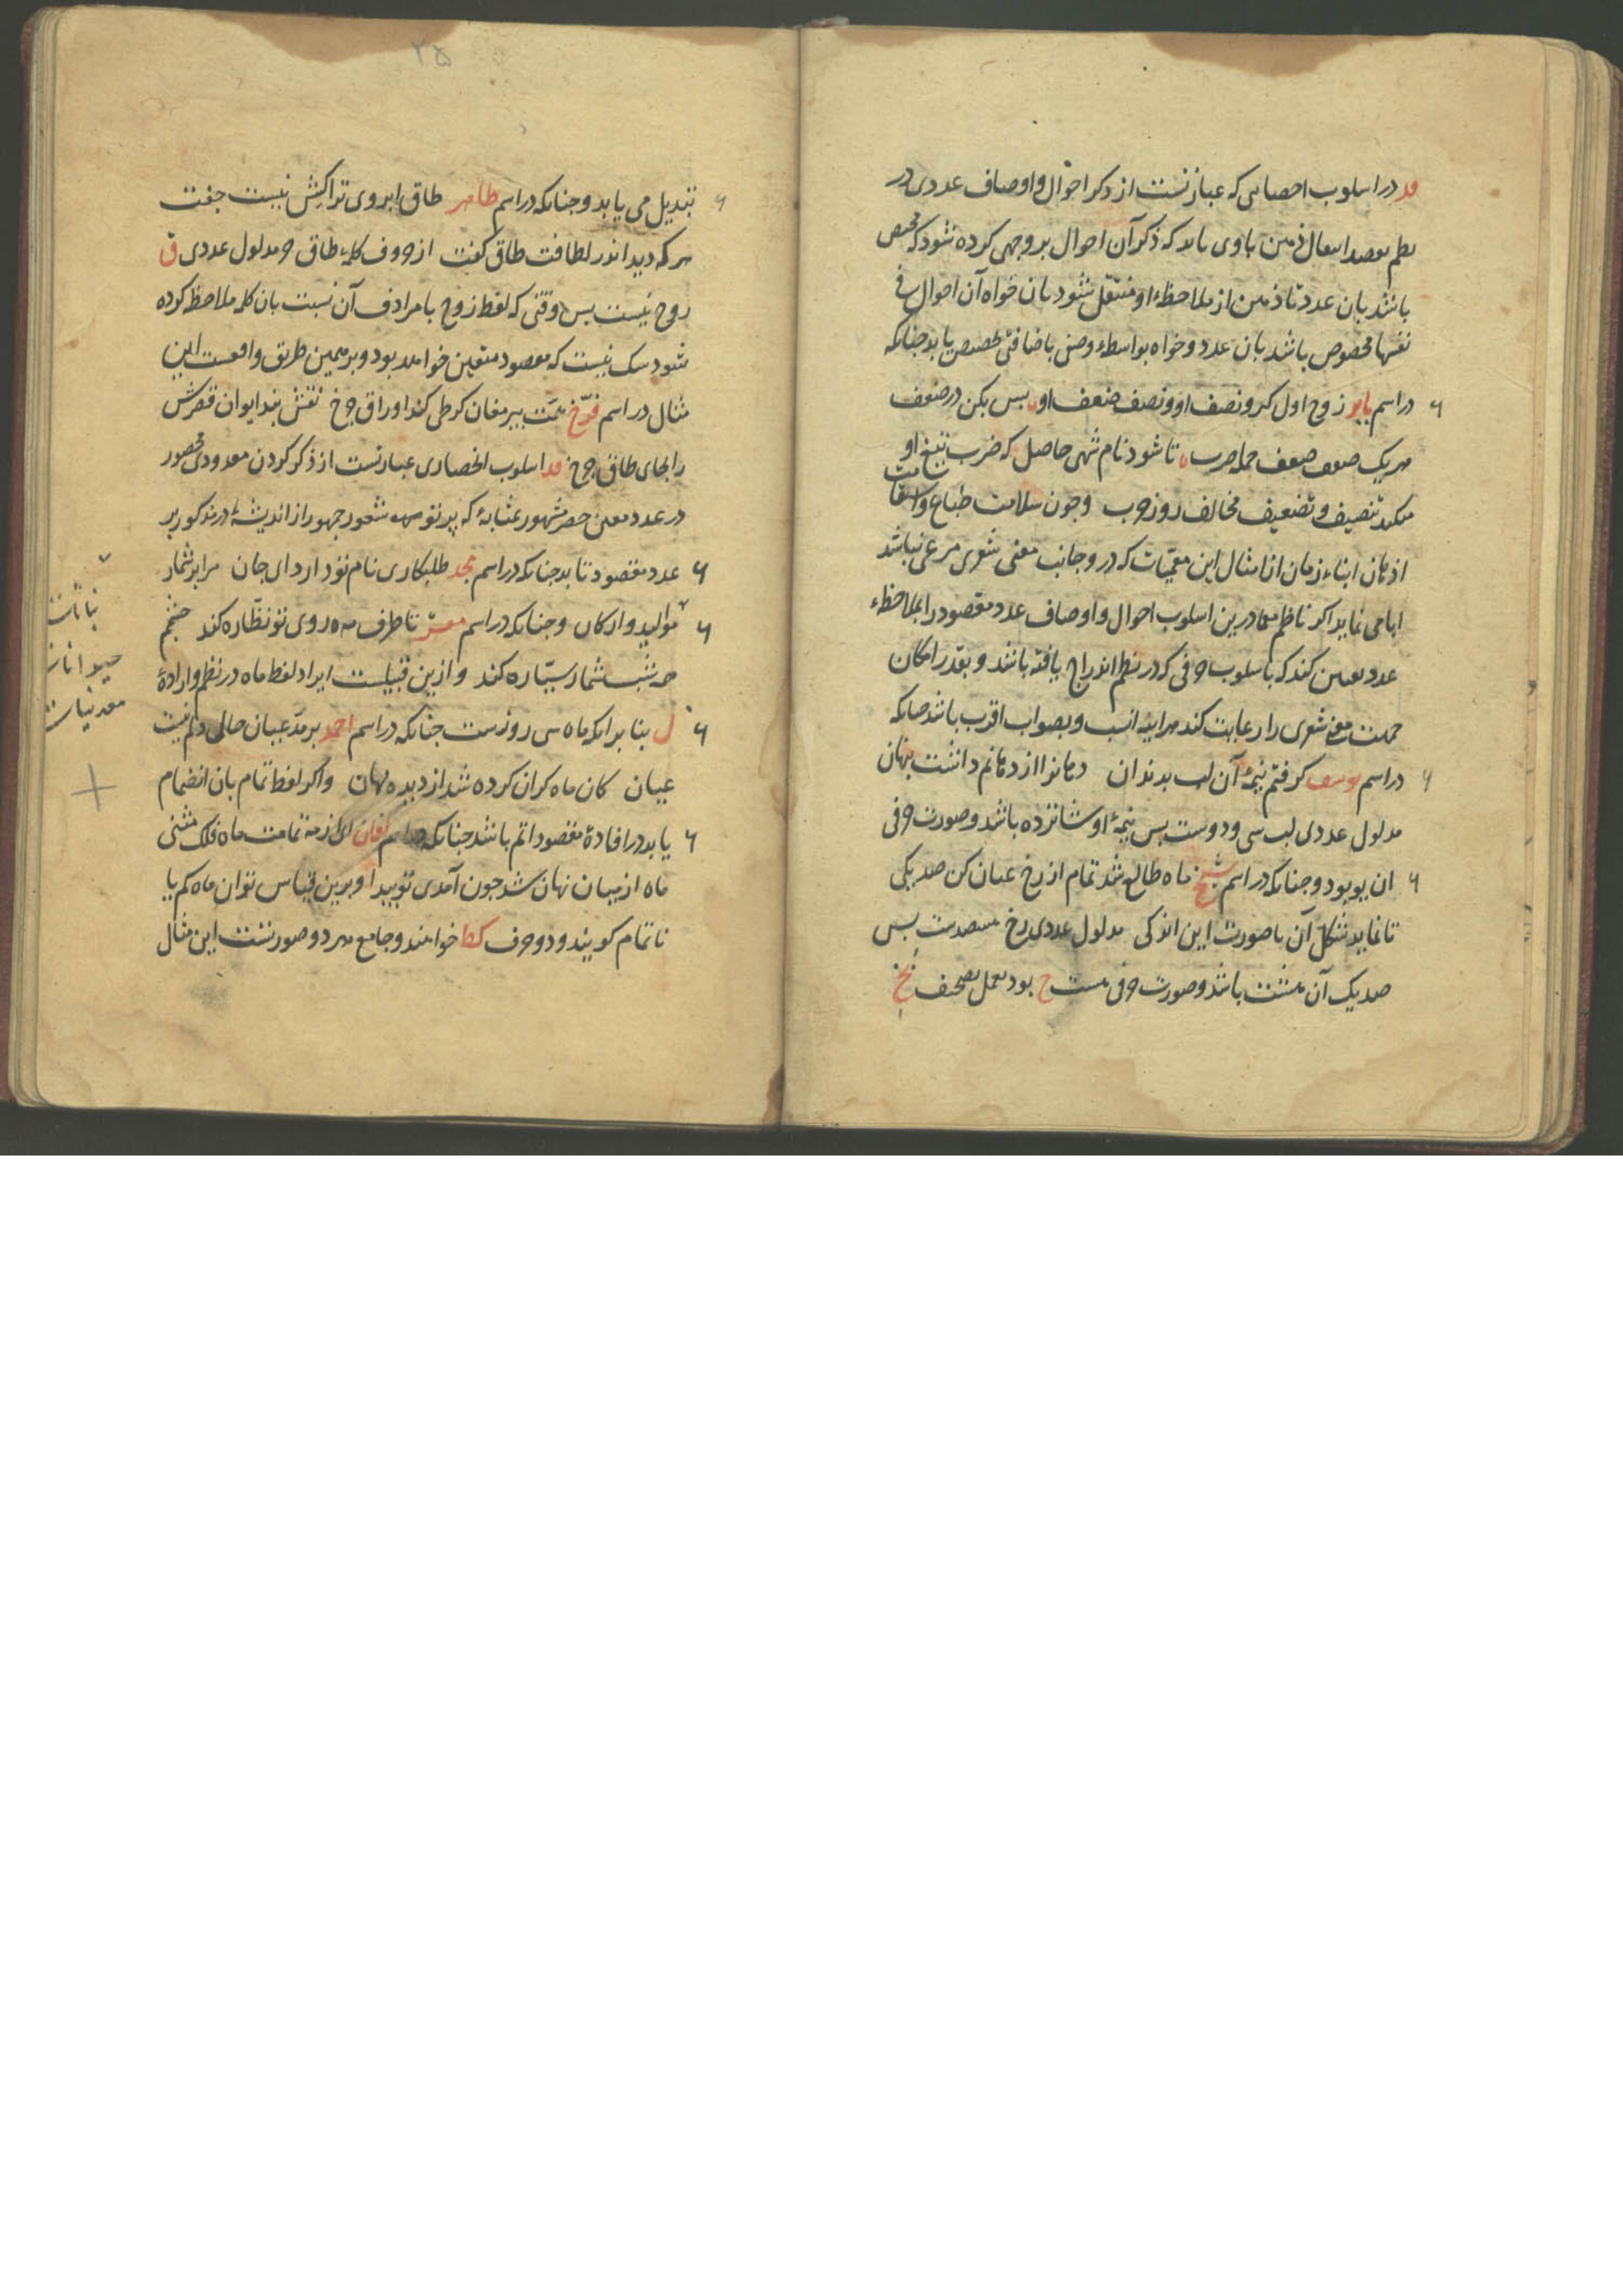 در اسلوب احصایی که عبارتست از ذکر احوال و اوصاف عددی در
نظم بقصد انتقال ذهن باوی باید که ذکر آن احوال بر وجهی کرده شود که مختص
باشد بان عدد تا ذهن از ملاحظهٔ او منتقل شود بان خواه آن احوال فی
نفسها مخصوص باشد بان عدد و خواه بواسطهٔ وصفی یا ضافتی تخصیص یابد چنانکه
در اسم بابر زوج اول کیر و نصف او و نصف ضعف او پس بکن در ضعف
هر یک ضعف ضعف جمله ضرب تا شود نام شهی حاصل که ضرب تیغ او
میکند تنصیف و تضعیف مخالف روز حرب وجون سلامت طباع و استقامت
اذهان ابناء زمان از امثال این معمیات که درو جانب معنی شعری مرعی نباشد
ابا می نماید اکر ناظم معما درین اسلوب احوال و اوصاف عدد مقصود را بملاحظهٔ
عدد تعیین کند که باسلوب حرفی که در نظم اندراج یافته باشد و بقدر امکان
معنی شعری را رعایت کند هر اینه انسب و بصواب اقرب باشد چنانکه
در اسم یوسف کرفتم نیمهٔ آن لب بدندان دهانرا از دهانم داشت پنهان
مدلول عددی لب سی و دوست پس نیمهٔ او شانزده باشد و صورت حرفی
ان یو بود و چنانکه در اسم شیخ ماه طالع شد تمام از رخ عیان کن صد یکی
تا نماید شکل آن با صورت این اندکی مدلول عددی رخ هشصدست پس
صد یک آن هشت باشد و صورت حرفی هشت ح بود بعمل تصحیف خ
۲۵
تبدیل می یابد و چنانکه در اسم طاهر طاق ابروی تراکش نیست جفت
هر که دید اندر لطافت طاق کفت از حروف کلمهٔ طاق مدلول عددی ق
زوج نیست پس وقتی که لفظ زوج یا مرادف آن نسبت بان کلمه ملاحظه کرده
شود شک نیست که مقصود متعین خواهد بود و بر همین طریق واقعست این
مثال در اسم فرخ همت پیر مغان کر طی کند اوراق چرخ نقش بند ایوان قصرش
را بجای طاق چرخ اسلوب انحصاری عبارتست از ذکر کردن معدودی محصور
در عدد معین حصر مشهور بمثابهٔ که پرتو شعور جمهور از اندیشهٔ در مذکور بر
عدد مقصود تابد چنانکه در اسم مجد طلبکاری نام تو دارد ای جان مرا بر شمار
موالید و ارکان و چنانکه در اسم معز تا طرف مه روی تو نظاره کند چشمم
همه شب شمار سیاره کند و ازین قبیلست ایراد لفظ ماه در نظم و ارادهٔ
ل بنا بر انکه ماه سی روزست چنانکه در اسم احمد بر مدعیان حالی دلم نیست
عیان کان ماه کران کرده شد از دیده نهان واکر لفظ تمام بان انضمام
یابد در افادهٔ مقصود اتم باشد چنانکه در اسم تمامت ماه فلک مشی
ماه از میان نهان شد چون آمدی تو پیدا و برین قیاس توان ماه کم یا
ناتمام کویند و دو حرف کط خواهند و جامع هر دو صورتست این مثال
نباتات
حیوانات
معدنیات